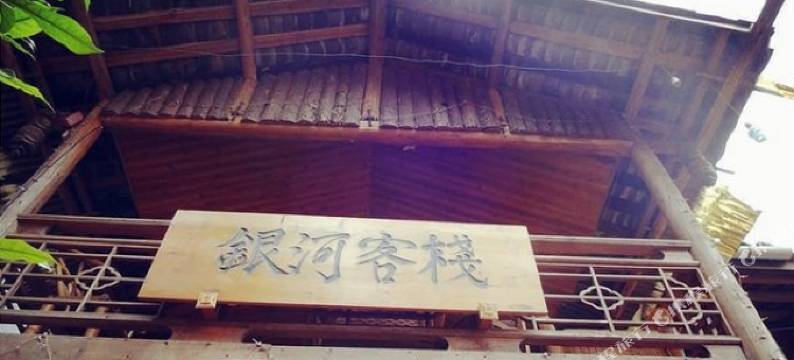 銀河客棧